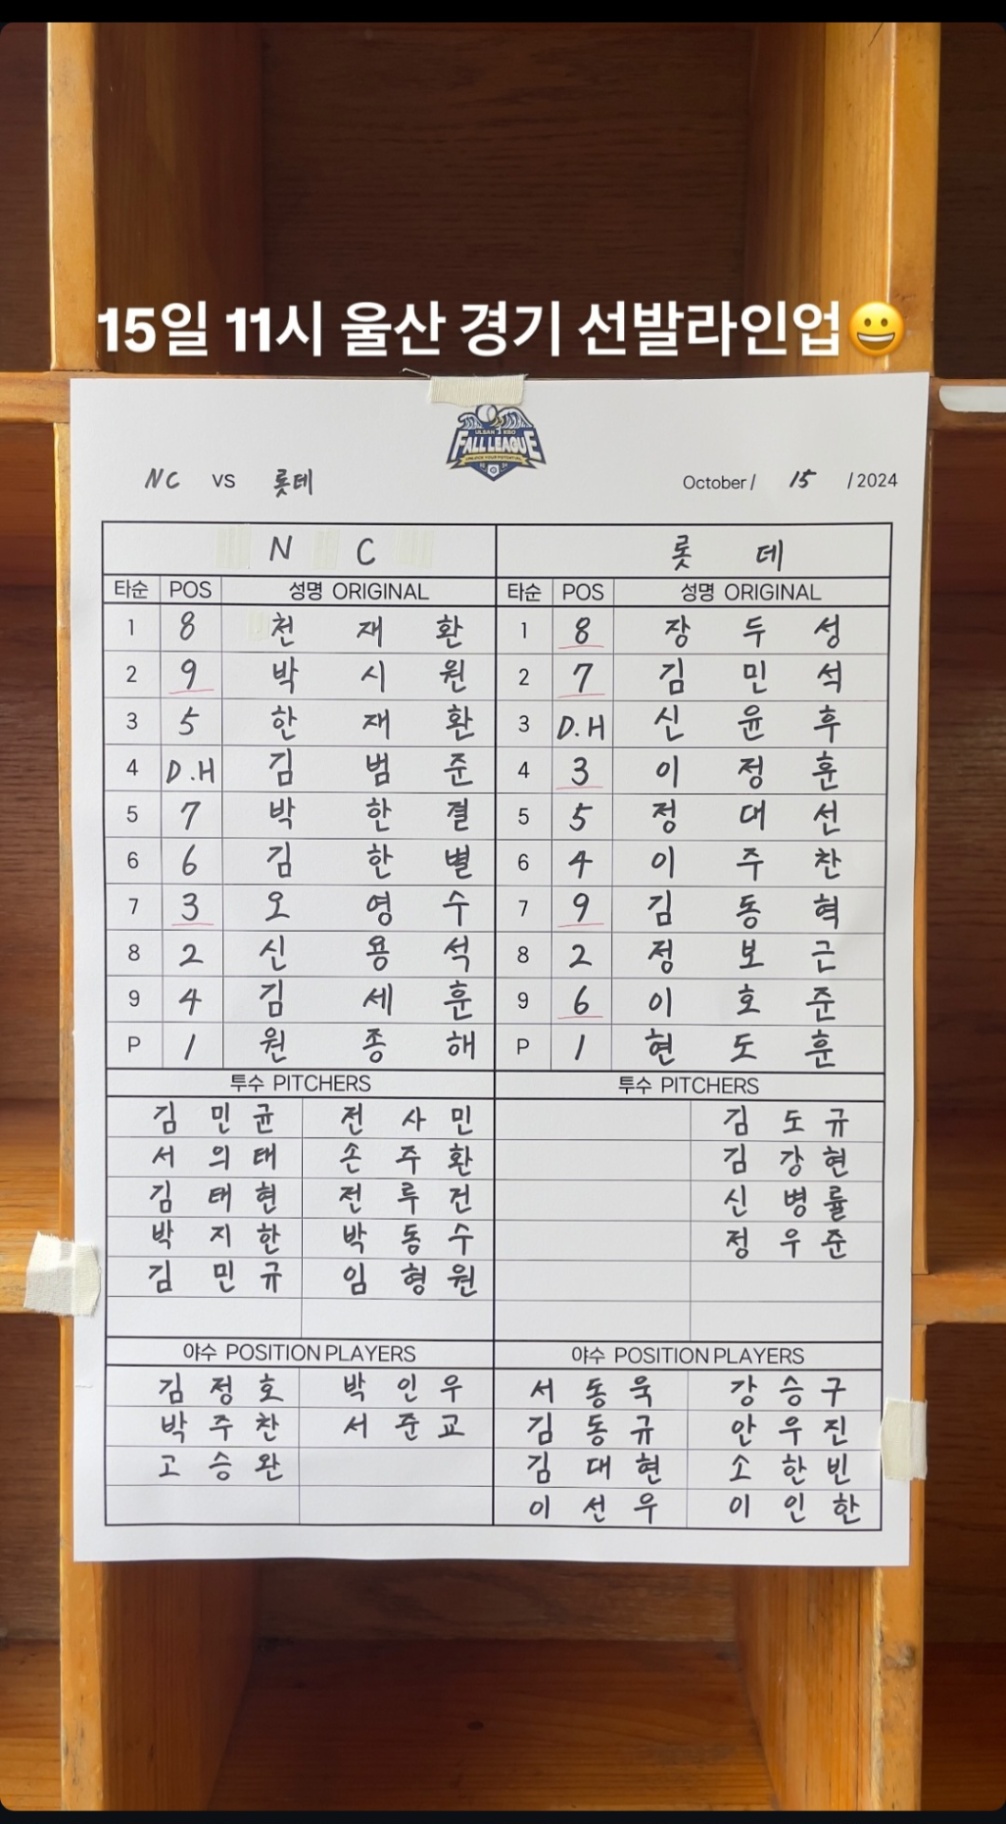 15일 11시 울산 경기 선발라인업😀
ULSAN KBO
FALL LEAGUE
NC vs 롯데 October / 15 / 2024
N C 롯 데
타순 POS 성명 ORIGINAL 타순 POS 성명 ORIGINAL
1 8 천 재 환 1 8 장 두 성
2 9 박 시 원 2 7 김 민 석
3 5 한 재 환 3 D.H 신 윤 후
4 D.H 김 범 준 4 3 이 정 훈
5 7 박 한 결 5 5 정 대 선
6 6 김 한 별 6 4 이 주 찬
7 3 오 영 수 7 9 김 동 혁
8 2 신 용 석 8 2 정 보 근
9 4 김 세 훈 9 6 이 호 준
P 1 원 종 해 P 1 현 도 훈
투수 PITCHERS 투수 PITCHERS
김 민 균 전 사 민 김 도 규
서 의 태 손 주 환 김 강 현
김 태 현 전 루 건 신 병 률
박 지 한 박 동 수 정 우 준
김 민 규 임 형 원
야수 POSITION PLAYERS 야수 POSITION PLAYERS
김 정 호 박 인 우 서 동 욱 강 승 구
박 주 찬 서 준 교 김 동 규 안 우 진
고 승 완 김 대 현 소 한 빈
이 선 우 이 인 한